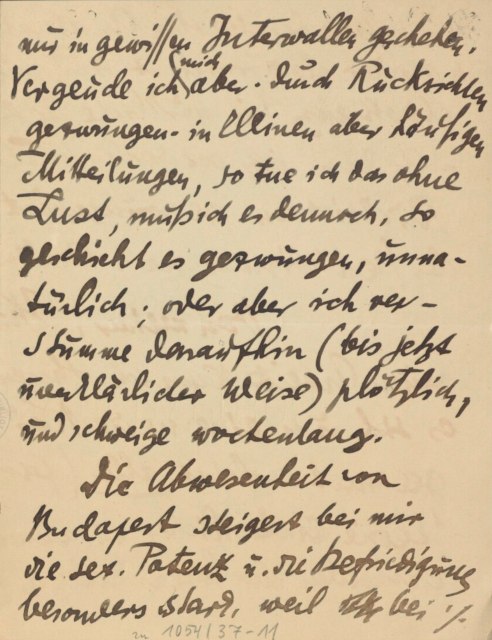 nur in gewissen Intervallen geschehen.
Vergeude ich mich aber - durch Rücksichten
gezwungen - in kleinen aber häufigen
Mitteilungen, so tue ich das ohne
Lust, muß ich es dennoch, so
geschieht es gezwungen, unna-
türlich; oder aber ich ver-
stumme daraufhin (bis jetzt
unerklärlicher Weise) plötzlich,
und schweige wochenlang.
Die Abwesenheit von
Budapest steigert bei mir
die sex. Potenz u. die Befriedigung
besonders stark, weil bei ·/.
1054/37-11